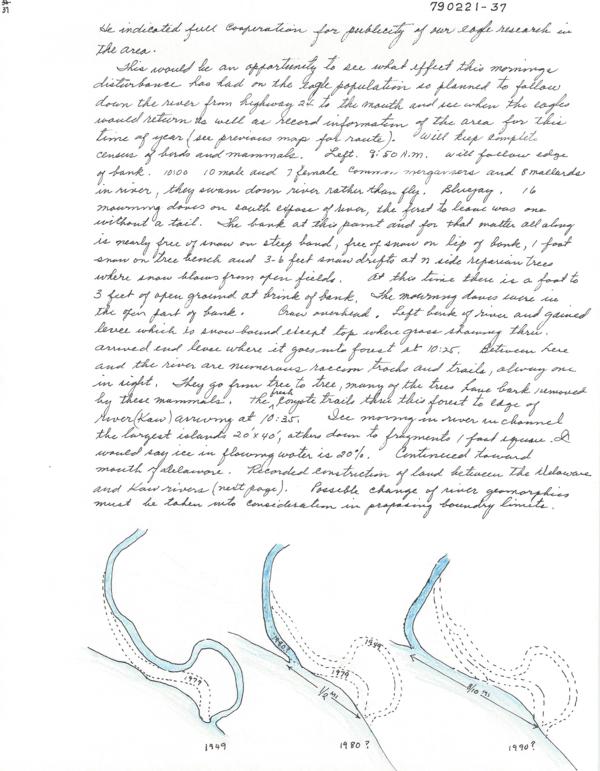 790221-37
He indicated full cooperation for publicity of our eagle research in
the area.
This would be an opportunity to see what effect this mornings
disturbance has had on the eagle population so planned to follow
down the river from highway 24 to the mouth and see when the eagles
would return as well as record information of the area for this
time of year (see previous map for route). Will keep complete
census of birds and mammals. Left 8:50 A.M. will follow edge
of bank. 10:00 10 male and 7 female common mergansers and 8 mallards
in river, they swam down river rather than fly. Bluejay. 16
mourning doves on south expose of river, the first to leave was one
without a tail. The bank at this point and for that matter all along
is nearly free of snow on steep band, free of snow on lip of bank, 1 foot
snow on tree bench and 3-6 feet snow drifts at N side reparian trees
where snow blows from open fields. At this time there is a foot to
3 feet of open ground at brink of bank. The mourning doves were in
the open part of bank. Crow overhead. Left bank of river and gained
levee which is snow bound except top where grass showing thru.
arrived end levee where it goes into forest at 10:25. Between here
and the river are numerous raccoon tracks and trails, always one
in sight. They go from tree to tree, many of the trees have bark removed
by these mammals. The fresh coyote trails thru this forest to edge of
river (Kaw) arriving at 10:35. Ice moving in river in channel
the largest islands 20'x40', others down to fragments 1 foot square. I
would say ice in flowing water is 20%. Continued toward
mouth of Delaware. Recorded constriction of land between the Delaware
and Kaw rivers (next page). Possible change of river geomorphics
must be taken into consideration in proposing boundry limits.
1979
1949
1980?
1949
1979
1/2 mi
1980?
8/10 mi
1990?